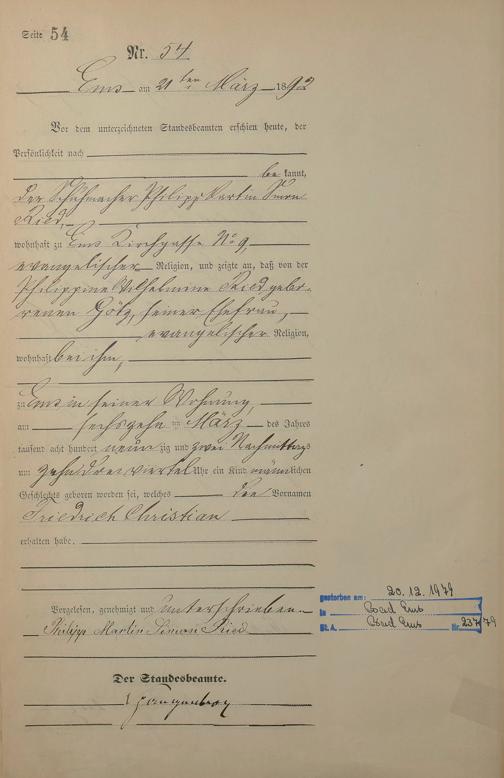 Seite 54
Nr. 54
Ems am 21ten März 1892
Vor dem unterzeichneten Standesbeamten erschien heute, der
Persönlichkeit nach
be kannt,
der Schuhmacher Philipp Martin Simon
Ried,
wohnhaft zu Ems Kirchgasse No 9,
evangelischer Religion, und zeigte an, daß von der
Philippine Wilhelmine Ried, gebo-
renen Götz, seiner Ehefrau,
evangelischer Religion,
wohnhaft bei ihm,
zu Ems in seiner Wohnung,
am sechszehn ten März des Jahres
tausend acht hundert neun zig und zwei Nachmittags
um zehn dreiviertel Uhr ein Kind männlichen
Geschlechts geboren worden sei, welches den Vornamen
Friedrich Christian
erhalten habe.
Vorgelesen, genehmigt und unterschrieben
Philipp Martin Simon Ried
Der Standesbeamte.
gestorben am: 20.12.1979
in Bad Ems
St. A. Bad Ems Nr. 237/79